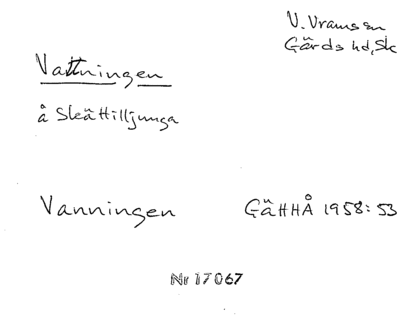 V. Vram ssn
Gärds hd, Sk
Vattningen
å Skättilljunga
Vanningen GäHHÅ 1958: 53
Nr 17067